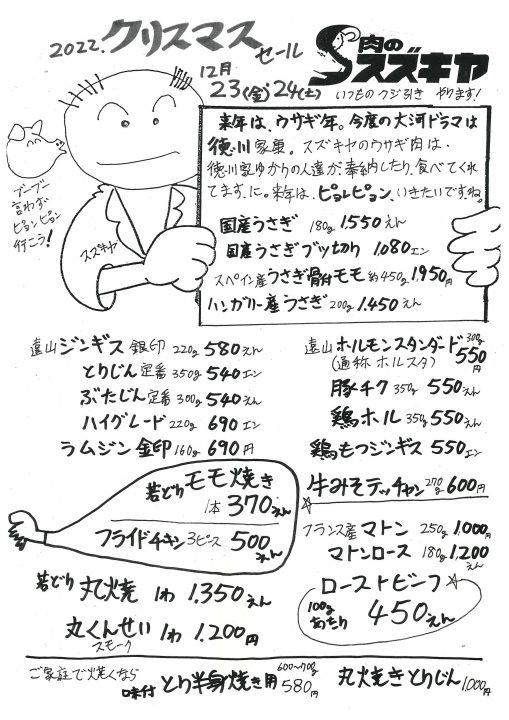 2022.クリスマスセール
肉のスズキヤ
12月
23(金)24(土)
いつものクジ引き やります!
来年は、ウサギ年。今度の大河ドラマは
徳川家康。スズキヤのウサギ肉は、
徳川家ゆかりの人達が奉納したり、食べてくれ
てます。に。来年は、ピョンピョン、いきたいですね。
国産うさぎ 180g 1,550えん
国産うさぎブッ切り 1,080エン
スペイン産うさぎ骨付モモ 約450g 1,950円
ハンガリー産うさぎ 200g 1,450えん
ブーブー
言わず
ピョンピョン
行こう!
スズキヤ
遠山ジンギス 銀印 220g 580えん
とりじん 定番 350g 540エン
ぶたじん 定番 300g 540えん
ハイグレード 220g 690エン
ラムジン 金印 160g 690円
遠山ホルモンスタンダード 300g 550円
(通称 ホルスタ)
豚チク 350g 550えん
鶏ホル 350g 550えん
鶏もつジンギス 550エン
牛みそテッチャン 270g 600円
若どり モモ焼き
1本 370えん
フライドチキン 3ピース 500えん
フランス産マトン 250g 1,000円
マトンロース 180g 1,200えん
若どり 丸焼 1わ 1,350えん
丸くんせい 1わ 1,200円
スモーク
ローストビーフ
100gあたり 450えん
ご家庭で焼くなら
味付 とり半身焼き用 600〜700g 580円
丸焼きとりじん 1,000円